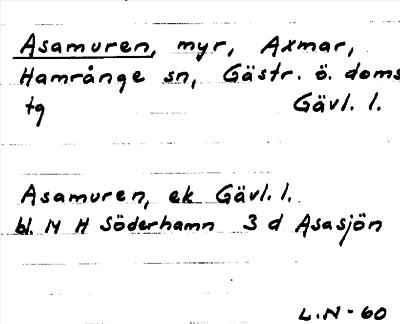 Asamuren, myr, Axmar,
Hamrånge sn, Gästr. ö. doms
tg Gävl. l.
Asamuren, ek Gävl. l.
bl. 14 H Söderhamn 3 d Asasjön
L.N-60